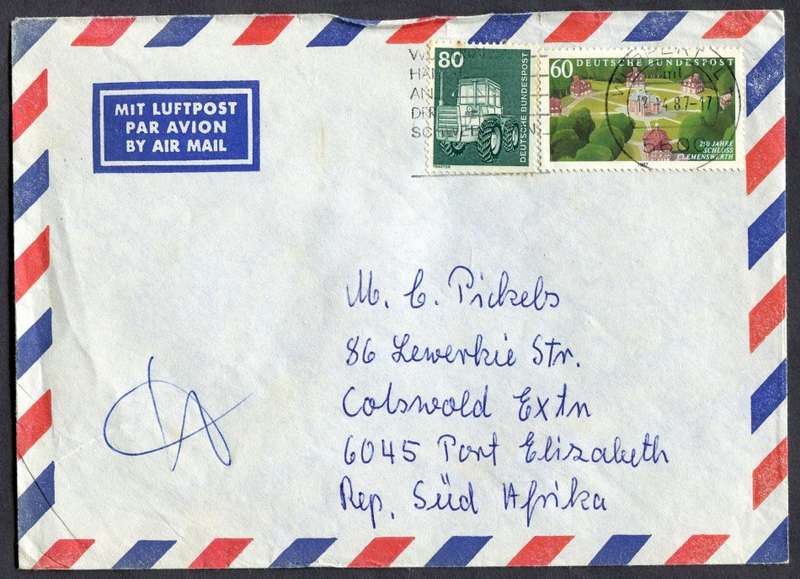 MIT LUFTPOST
PAR AVION
BY AIR MAIL
80
DEUTSCHE BUNDESPOST
60 DEUTSCHE BUNDESPOST
250 JAHRE
SCHLOSS
CLEMENSWERTH
1987
560
M. C. Pickels
86 Lewerkie Str.
Colswold Extn
6045 Port Elizabeth
Rep. Süd Afrika